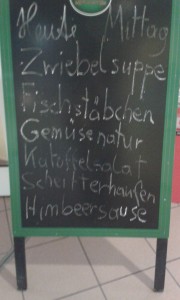 Heute Mittag
Zwiebelsuppe
Fischstäbchen
Gemüse natur
Katoffelsalat
Scheitterhaufen
Himbeersause